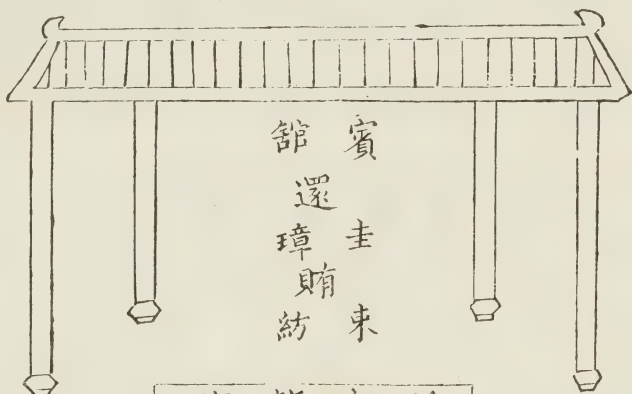 賓舘
還
圭璋
賄
束紡